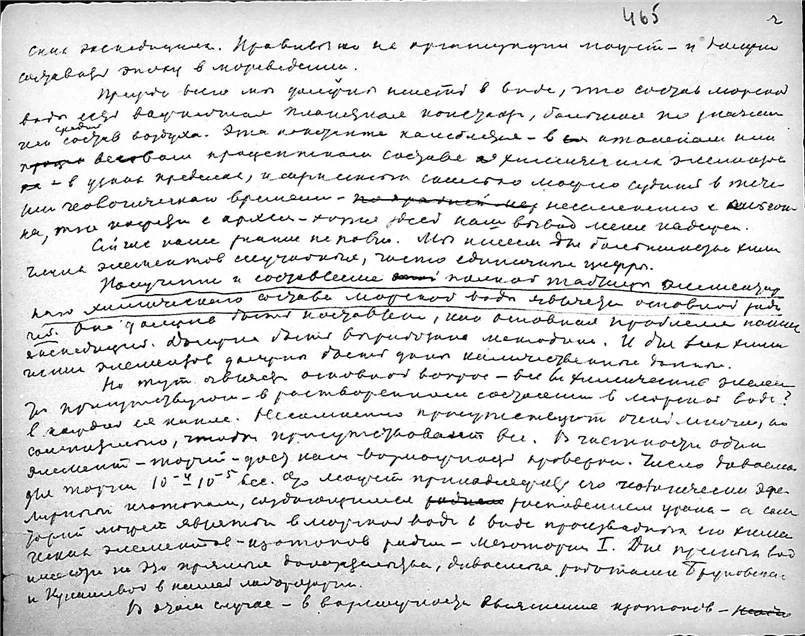 465 2
ских экспедициях. Правильно их организации может – и должен
составить эпоху в мореведении.
Прежде всего мы должны иметь в виде, что состав морской
воды есть важнейшая планетная константа, большая по значению
чем средний состав воздуха. Эта константа колеблется – в атомном или
весовом процентном составе химических элементов
– в узких пределах, и неизменность можно судить в тече-
нии человеческого времени – неизменно с
на, что касается с археи – хотя здесь наш вывод менее надежен.
Сейчас наше знание неполно. Мы имеем для большинства хими-
ческих элементов случайные, часто единичные цифры.
Получение и составление полной таблицы элементар-
ного химического состава морской воды является основной зада-
чей. Она должна быть поставлена, как основная проблема наших
экспедиций. Должна быть выработана методика. И для всех хими-
ческих элементов должны быть даны количественные данные.
Но тут является основной вопрос – все ли химические элемен-
ты присутствуют – в растворенном состоянии в морской воде?
в каждой ее капле. Несомненно присутствуют очень многие, но
сомнительно, чтобы присутствовали все. В частности один
элемент – торий – дает нам возможность проверки. Число даваемое
для тория 10⁻⁴–10⁻⁵ вес. % может принадлежать его
изотопам, создающимся распадением урана – а сам
торий может явиться в морской воде в виде производных его хими-
ческих элементов – изотопов радия – мезотория I. Для пресных вод
имеются на это прямые доказательства, даваемые работами Бруновского
и Кунашевой в нашей лаборатории.
В этом случае – в возможности выяснения изотопов –